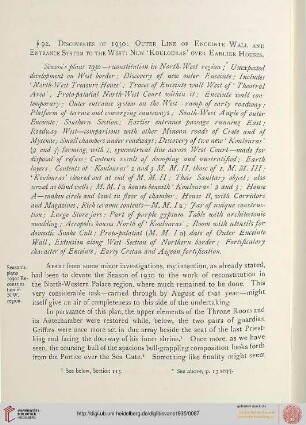 § 92. Discoveries of 1930: Outer Line of Enceinte Wall and
Entrance System to the West: New 'Kouloures' over Earlier Houses.
Season's plans 1930—reconstitution in North-West region; Unexpected
development on West border; Discovery of new outer Enceinte; Includes
'North-West Treasure House'; Traces of Enceinte wall West of 'Theatral
Area'; Proto-palatial North-West Court within it; Enceinte wall con-
temporary; Outer entrance system on the West—ramp of early roadway;
Platform of terrace and converging causeways; South-West Angle of outer
Enceinte; Southern Section; Earlier entrance passage running East;
Roadway West—comparisons with other Minoan roads of Crete and of
Mycenae; Small chambers under roadways; Discovery of two new 'Kouloures'
(2 and 3) forming, with 1, symmetrical line across West Court—made for
disposal of refuse; Contents result of dumping and unstratified; Earth
layers; Contents of 'Kouloures' 2 and 3 M. M. II, those of 1, M. M. III;
'Kouloures' cleared out at end of M. M. II; Their Sanitary object; also
served as blind wells; M. M. I a houses beneath 'Kouloures' 2 and 3; House
A—sunken circle and vent in floor of chamber; House B, with Corridors
and Magazines; Rich ceramic contents—M. M. I a; 'Jar of unique construc-
tion; Large Store jars; Part of purple gypsum Table with architectonic
moulding; Acropolis houses North of 'Kouloures'; Room with utensils for
domestic Snake Cult; Proto-palatial (M. M. I a) date of Outer Enceinte
Wall; Extension along West Section of Northern border; Fortificatory
character of Enceinte; Early Cretan and Aegean fortification.
Season's
plans
1930: Re-
consti-
tution
N.W.
region.
Apart from some minor investigations, my intention, as already stated,
had been to devote the Season of 1930 to the work of reconstitution in
the North-Western Palace region, where much remained to be done. This
very considerable task—carried through by August of that year—might
itself give an air of completeness to this side of the undertaking.
In pursuance of this plan, the upper elements of the Throne Room and
its Antechamber were restored while, below, the two pairs of guardian
Griffins were once more set in due array beside the seat of the last Priest-
king and facing the doorway of his inner shrine. Once more, as we have
seen, the coursing bull of the spacious bull-grappling composition looks forth
from the Portico over the Sea Gate. Something like finality might seem
¹ See below, Section 115.
² See above, p. 13 seqq.
http://digi.ub.uni-heidelberg.de/diglit/evans1935/0087
UNIVERSITÄTS-
BIBLIOTHEK
HEIDELBERG